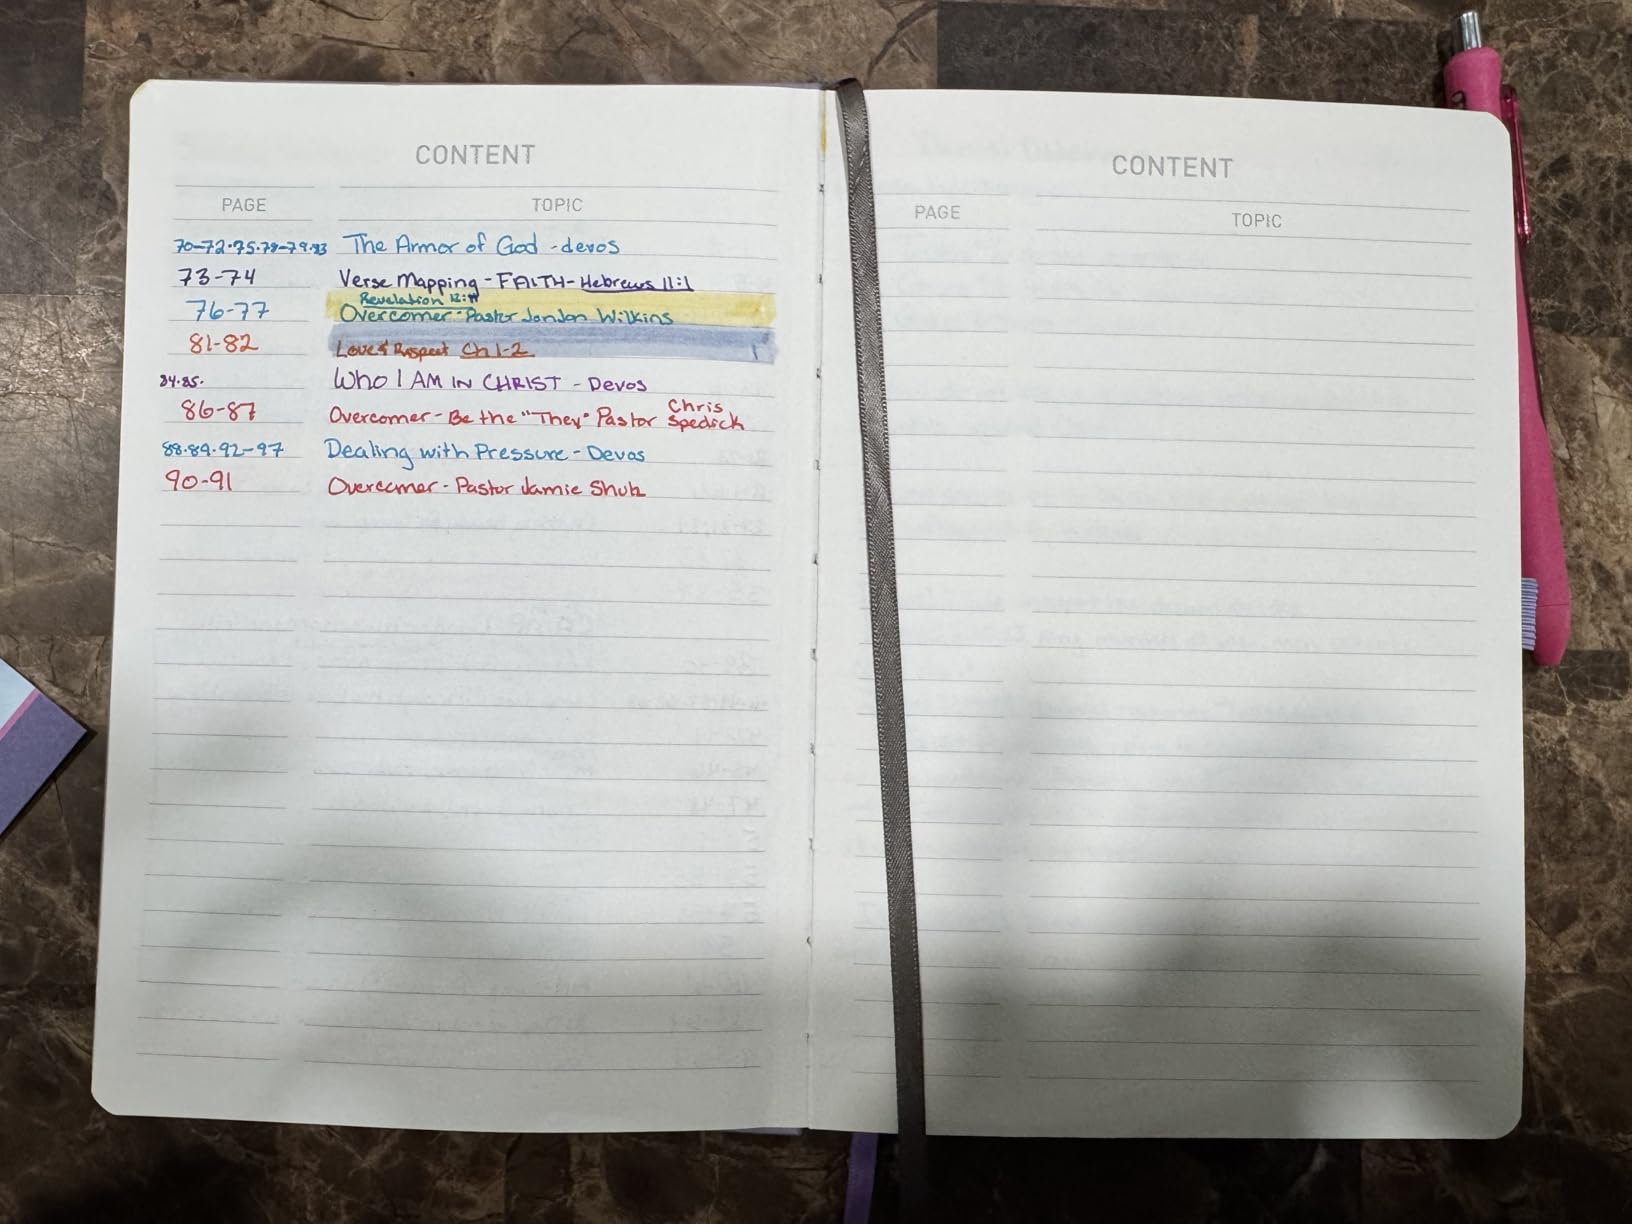 CONTENT
PAGE TOPIC
70-72·75·78-79·83 The Armor of God - devos
73-74 Verse Mapping - FAITH - Hebrews 11:1
Revelation 12:11
76-77 Overcomer - Pastor Landon Wilkins
81-82 Love & Respect Ch 1-2
84·85· Who I AM IN CHRIST - Devos
Chris
86-87 Overcomer - Be the "They" Pastor Spedick
88·89·92-97 Dealing with Pressure - Devos
90-91 Overcomer - Pastor Jamie Shuh
CONTENT
PAGE TOPIC